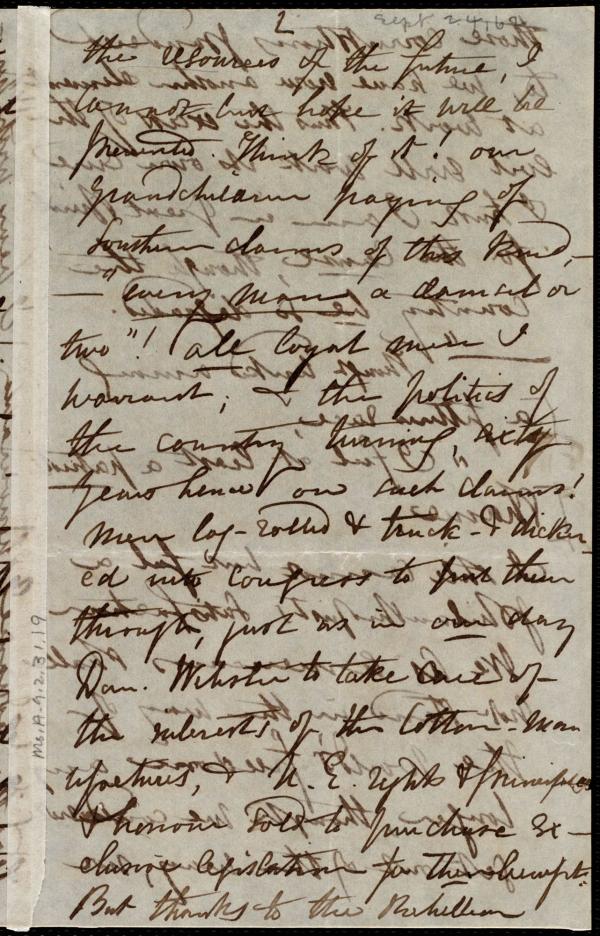 2
Sept 24, 62
the resources of the future, I
cannot but hope it will be
prevented. Think of it! our
grandchildren paying of
Southern claims of this kind,—
— "every man a claimant or
two"! all loyal men I
warrant; & the politics of
the country turning, sixty
years hence on such claims!
Men log-rolled & truck- & dicker-
ed into Congress to put them
through, just as in our day
Dan. Webster to take care of
the interests, of, the Cotton-Man
ufactures, & N. E. rights & principles
& honour sold to purchase ex-
clusive legislation for their benefit.
But thanks to the Rebellion
Ms. A. 9. 2. 31. 19